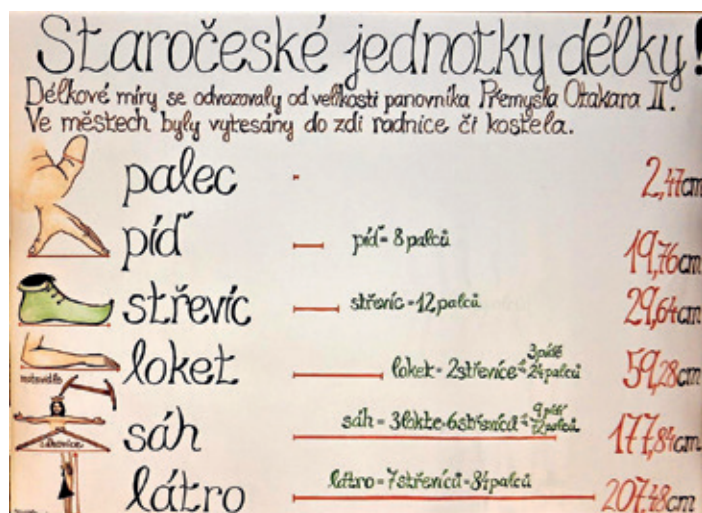 Staročeské jednotky délky!
Délkové míry se odvozovaly od velikosti panovníka Přemysla Otakara II.
Ve městech byly vytesány do zdi radnice či kostela.
palec 2,47cm
píď píď = 8 palců 19,76cm
střevíc střevíc = 12 palců 29,64cm
loket loket = 2 střevíce = 3 pídě = 24 palců 59,28cm
sáh sáh = 3 lokte = 6 střevíců = 9 pídí 177,84cm
látro látro = 7 střevíců = 84 palců 207,48cm